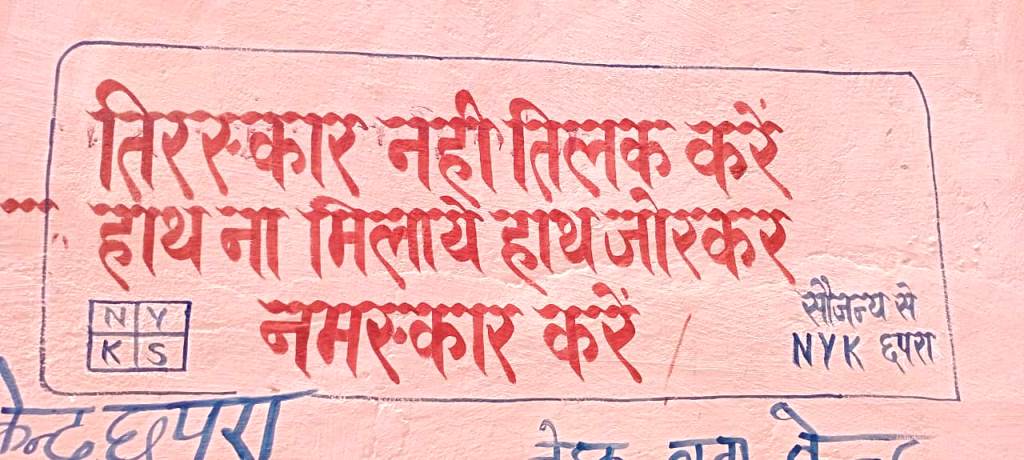 तिरस्कार नही तिलक करें
हाथ ना मिलाये हाथ जोरकर
नमस्कार करें
N Y
K S
सौजन्य से
NYK छपरा
केन्द्र छपरा